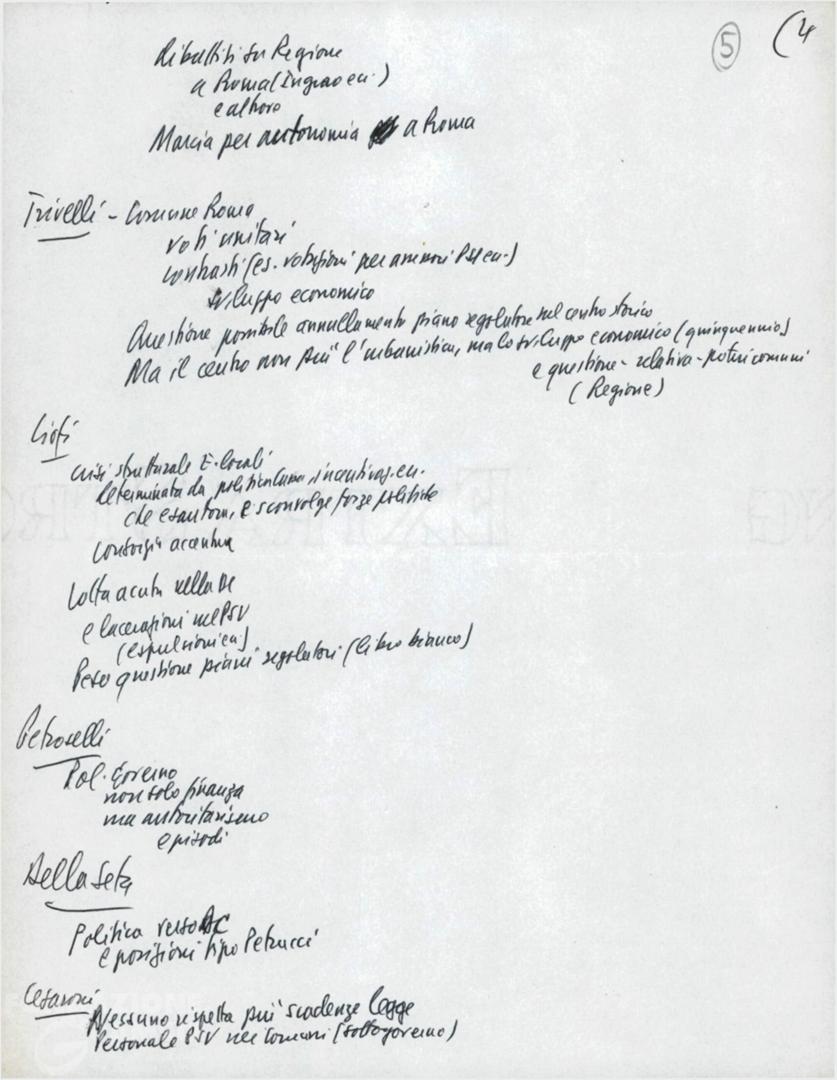 5 (4
Dibattiti su Regione
a Roma (Ingrao ecc.)
e altrove
Marcia per autonomia a Roma
Trivelli - Comune Roma
voti unitari
contrasti (es. votazioni per assessori PSI ecc.)
sviluppo economico
Questione possibile annullamento piano regolatore nel centro storico
Ma il centro non più l'urbanistica, ma lo sviluppo economico (quinquennio)
e questione - relativa - poteri comuni
(Regione)
Ciofi
crisi strutturale E. locali
determinata da politica incentivaz. ecc.
che esautora, e sconvolge forze politiche
Consorzi accentua
Lotta acuta nella DC
e lacerazioni nel PSU
(espulsioni ecc.)
Peso questione piani regolatori (libro bianco)
Petroselli
Pol. Governo
non solo finanza
ma autoritarismo
episodi
Della Seta
Politica verso DC
e posizioni tipo Petrucci
Cesaroni
Nessuno rispetta più scadenze legge
Personale PSU nei Comuni (sottogoverno)